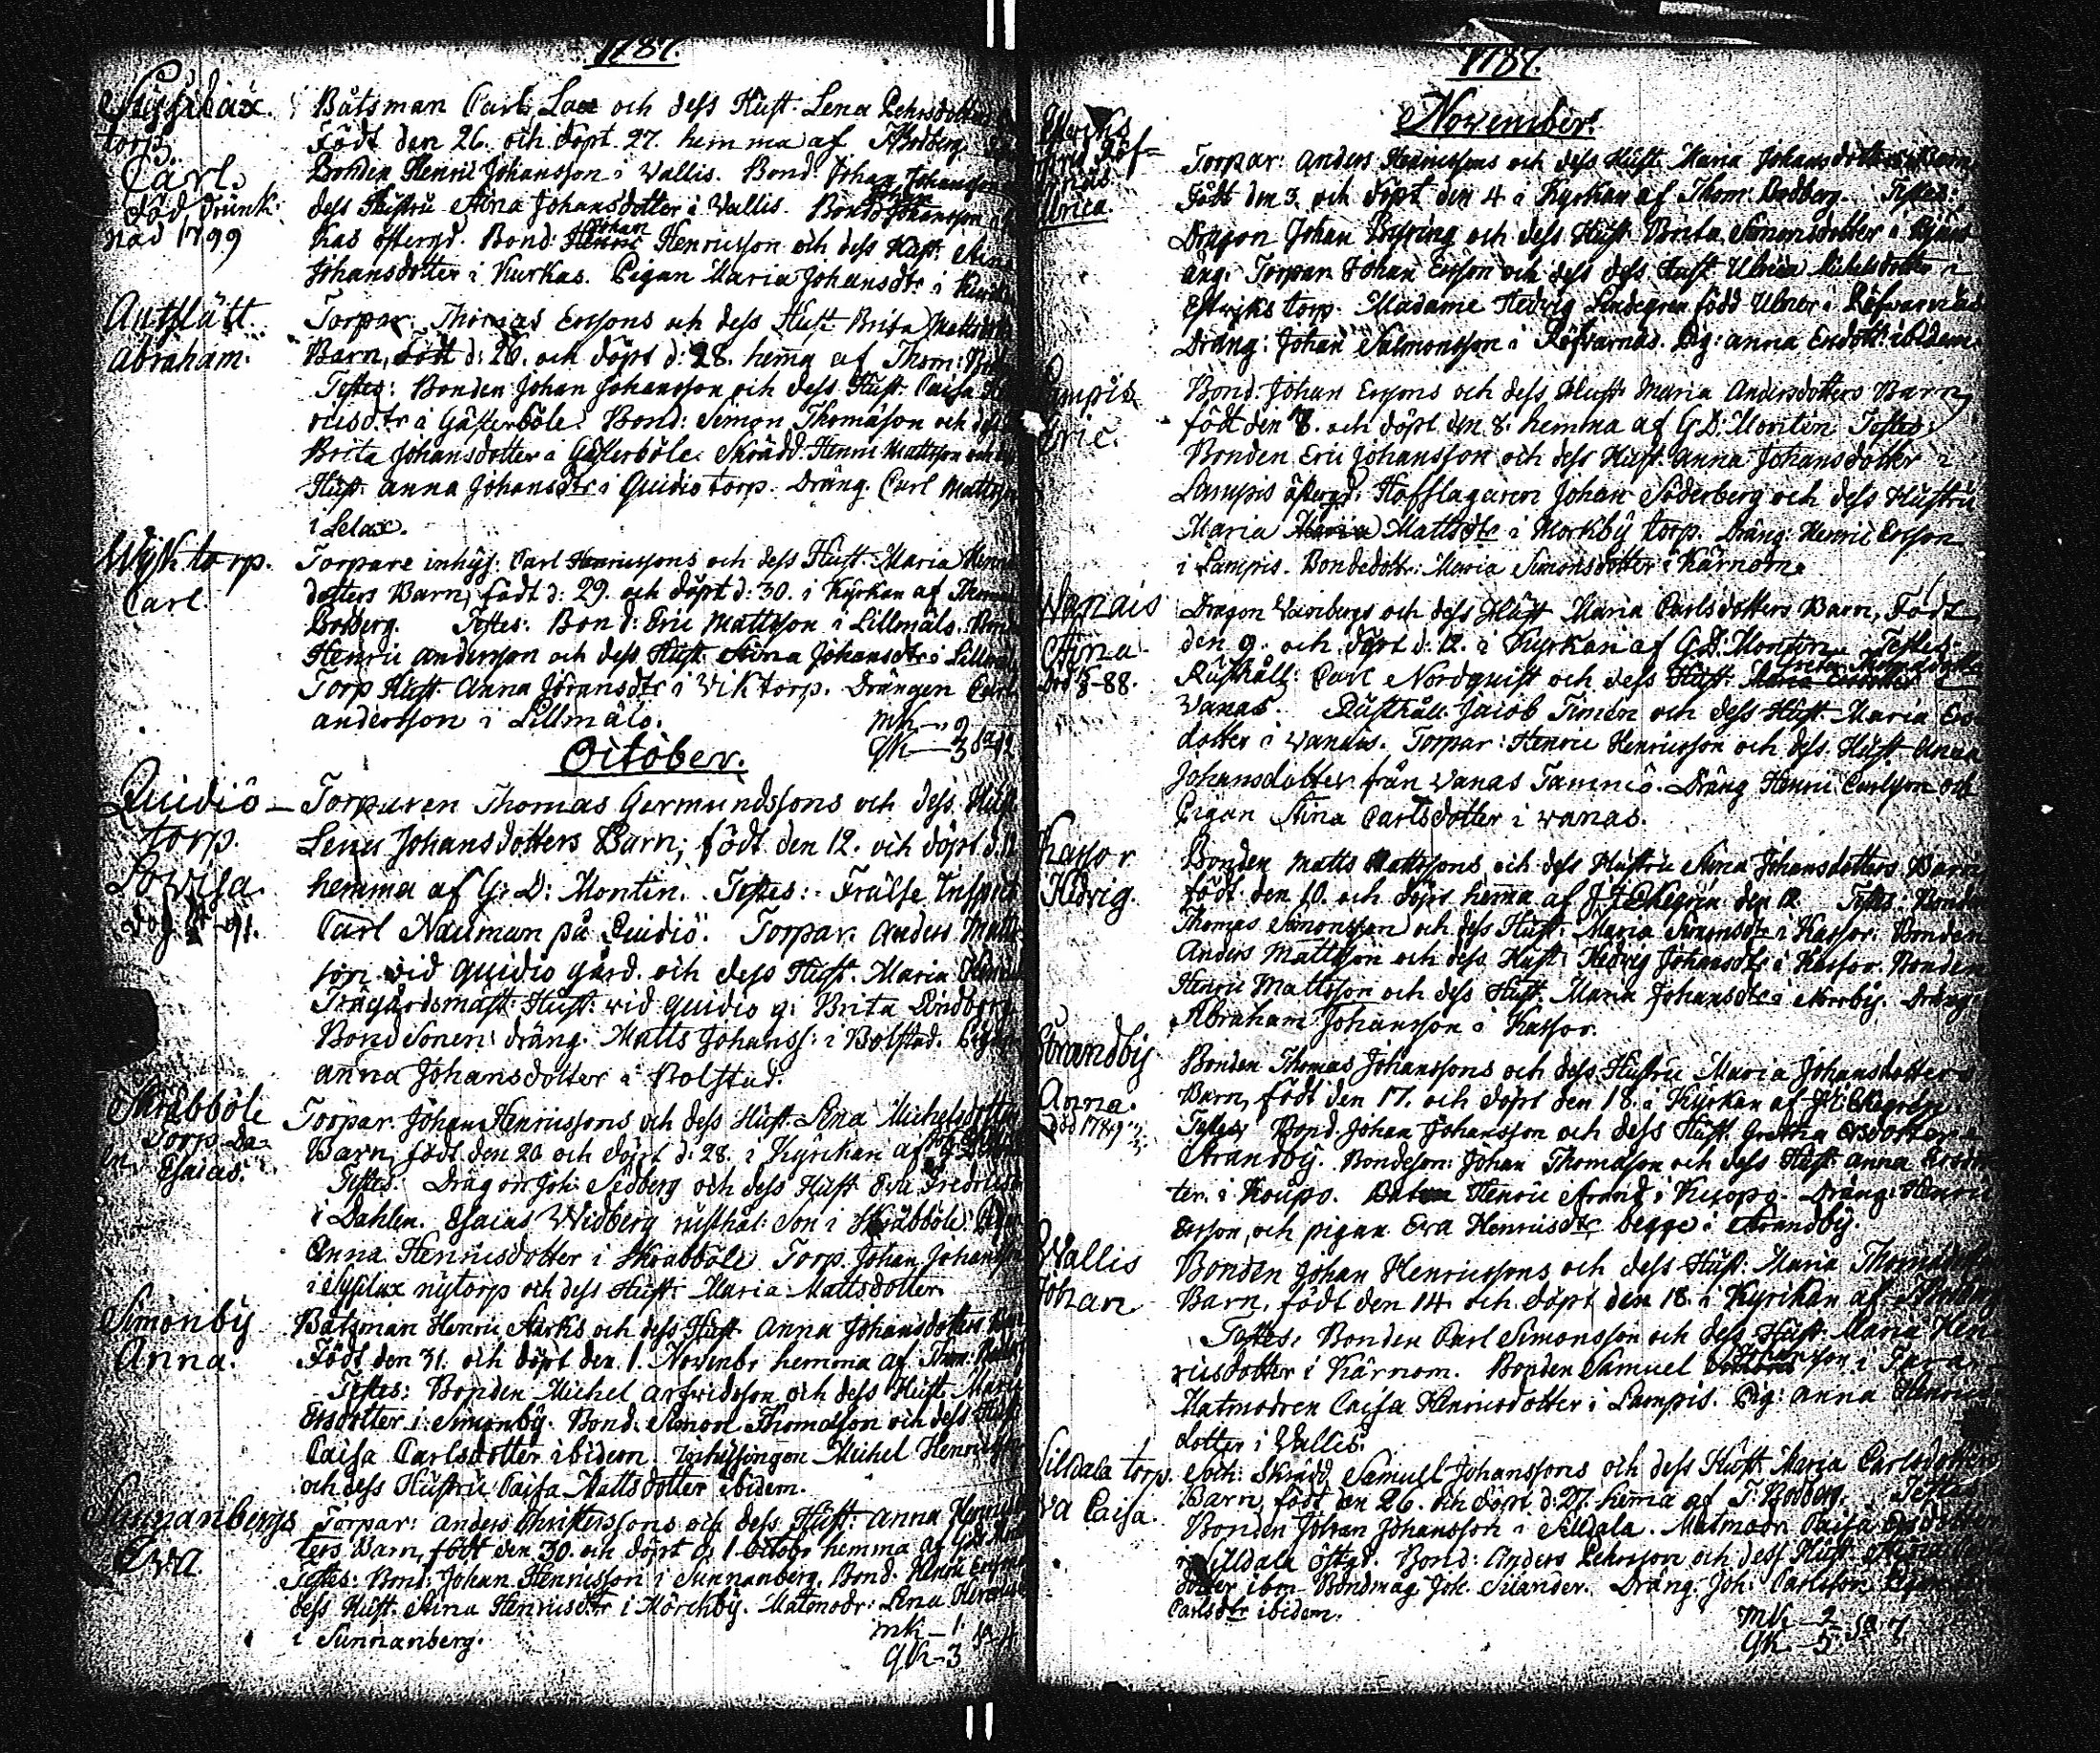 1787.
torp.
Carl
död drunk-
nad 1799
Båtsman Carl Lax och dess Hust. Lena Pehrsdotters
Födt den 26. och döpt 27. hemma af
Bonden Henric Johansson i Wallis. Bond. Johan Johansson
dess Hustru Stina Johansdotter i Wallis. Bond Johansson
kas östergd. Bond: Johan Henricsson och dess Hust. Stina
Johansdotter i Kurkas. Pigan Maria Johansdr: i
Abraham.
Torpar. Thomas Erssons och dess Hust Brita Mattsdott
Barn, födt d: 26. och döpt d: 28. hema af Thom:
Testes: Bonden Johan Johansson och dess Hust. Caisa
ricsdtr i Gästerböle. Bond: Simon Thomasson och dess
Brita Johansdotter i Gästerböle. Skrädd. Henric Mattsson
Hust. Anna Johansdtr i Quidiö torp. Dräng. Carl Mattsson
i Lelax.
Wijk torp.
Carl.
Torpare inhys: Carl Henricssons och dess Hust. Maria Henric
dotters Barn, födt d: 29. och döpt d: 30. i Kyrkan af Thom
Bodberg. Testes: Bond: Eric Mattsson i Lillmälö. Bond
Henric Andersson och dess Hust. Stina Johansdtr i Lillmälö
Torp Hust. Anna Göransdtr i Viktorp. Drängen Carl
Andersson i Lillmälö.
mk - 9
qk - 3
October.
Quidiö
torp.
Lowisa.
Torparen Thomas Germundssons och dess Hust
Lena Johansdotters Barn, födt den 12. och döpt d.
hemma af G: D: Montin. Testes: Frälse Inspect
Carl Nauman på Quidiö. Torpar. Anders Matts
son vid Quidio gård. och dess Hust. Maria Henric
Trägårdsmäst: Hust: vid Quidio g: Brita Lindberg
Bond Sonen: dräng. Matts Johanss: i Bolstad. Pigan
Anna Johansdotter i Bolstad.
Skräbböle
Torp
Esaias.
Torpar. Johan Henricssons och dess Hust. Lena Michelsdotters
Barn, födt den 20 och döpt d: 28. i Kyrckan af
Testes. Dragon Joh: Sedberg och dess Hust Eva Fredricsd
i Dahlen. Esaias Widberg rusthål: Son i Skräbböle.
Anna Henricsdotter i Skräbböle. Torp. Johan Johansson
i nytorp och dess Hust: Maria Mattsdotter.
Simonby
Anna.
Båtsman Henric Starks och dess Hust Anna Johansdotters
Födt den 31. och döpt den 1. Novembr hemma af Thom:
Testes: Bonden Michel Arfwidsson och dess Hust: Maria
Ersdotter i Simonby. Bond. Simon Thomasson och dess Hust
Caisa Carlsdotter ibidem. Inhysingen Michel Henricsson
och dess Hustru Caisa Mattsdotter ibidem.
Sunnanbergs
Eva
Torpar: Anders Christerssons och dess Hust: Anna Henricsdot
ters Barn, födt den 30. och döpt d: 1 Octobr hemma af
Testes: Bond: Johan Henricsson i Sunnanberg. Bond. Henric Ersson
dess Hust. Stina Henricsdtr i Mörckby. Matmodr: Lena Henricsd
i Sunnanberg.
mk - 1.
qk - 3
1787.
November.
Ulrica.
Torpar: Anders Henricssons och dess Hust. Maria Johansdotters Barn
Födt den 3. och döpt den 4 i Kyrkan af Thom: Bodberg. Testes:
Dragon Johan och dess Hust. Brita Simonsdotter i
äng. Torpar. Johan Ersson och dess dess Hust Ulrica Michelsdotter i
torp. Madame Hedvig Lindegren född Ulner i Röfvarnäs
Dräng: Johan Salmonsson i Röfvarnäs. Pig: Anna Ersdott: ibidem.
Lampis
Eric.
Bond. Johan Erssons och dess Hust. Maria Andersdotters Barn
födt den 8. och döpt den 8. hemma af G.D. Montin. Testes.
Bonden Eric Johansson och dess Hust. Anna Johansdotter i
Lampis östergd. Hofslagaren Johan Söderberg och dess Hustru
Maria Mattsdtr i Morkby torp. Dräng: Henric Ersson
i Lampis. Bondedottr: Maria Simonsdotter i Kärnom.
Wanais
Stina
Dragon och dess Hust Maria Carlsdotters Barn, Födt
den 9. och döpt d: 12. i Kyrkan af G.D: Montin. Testes:
Rusthåll: Carl Nordquist och dess Hust. Greta Thomasdotter
Vanas. Rusthåll. Jacob Simon och dess Hust Maria Ers
dotter i Vanais. Torpar: Henric Henricsson och dess Hust Anna
Johansdotter från Vanas Tammo. Dräng Henric Carlsson och
Pigan Stina Carlsdotter i Vanas.
Kassor
Hedvig.
Bonden Matts Mattssons och dess Hustru Stina Johansdotters Barn
födt den 10. och döpt hema af den 12 Testes. Bonden
Thomas Simonsson och dess Hust. Maria Simonsdtr i Kassor. Bonden
Anders Mattsson och dess Hust. Hedvig Johansdtr i Kassor. Bonden
Henric Mattsson och dess Hust. Maria Johansdtr i Norrby. Dräng
Abraham Johansson i Kassor.
Strandby
Anna.
Bonden Thomas Johanssons och dess Hustru Maria Johansdotters
Barn, födt den 17. och döpt den 18. i Kyrkan af
Testes, Bond. Johan Johansson och dess Hust. Gretha Ersdotter i
Strandby. Bondeson: Johan Thomasson och dess Hust Anna Ersdot
ter. i Koupo. Henric Strand i Kuoppo. Dräng: Henric
Ersson, och pigan Eva Henricsdtr begge i Strandby.
Wallis
Johan
Bonden Johan Henricssons och dess Hust: Maria Thomasdotter
Barn, födt den 14. och döpt den 18. i Kyrckan af
Testes, Bonden Carl Simonsson och dess Hust: Maria Hen
ricsdotter i Kärnom. Bonden Samuel Johansson i
Matmodren Caisa Henricsdotter i Lampis. Pig: Anna Henrics
dotter i Wallis.
Silldala torp.
Eva Caisa.
Soch: Skrädd. Samuel Johanssons och dess Hust Maria Carlsdotters
Barn, födt den 26. och döpt d: 27. hema af T. Bodberg. Testes
Bonden Johan Johansson i Silldala. Matmodr. Caisa Ersdotter
i Silldala östgd. Bond: Anders Pehrsson och dess Hust.
dotter ibm Bondmåg Joh. Silander. Dräng. Joh: Carlsson Pigan
Carlsdtr ibidem.
mk - 2
qk - 5 Sa 7